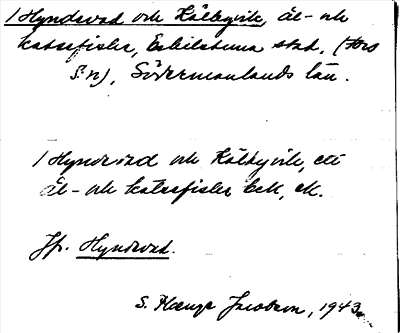 / Hyndevad och Kälbyvik, ål- och
katsefiske, Eskilstuna stad, (Fors
sn), Södermanlands län.
/ Hyndevad och Kälbyvik, ett
ål- och katsefiske beck, ek.
Jfr. Hyndevad.
S. Jacobson, 1943.